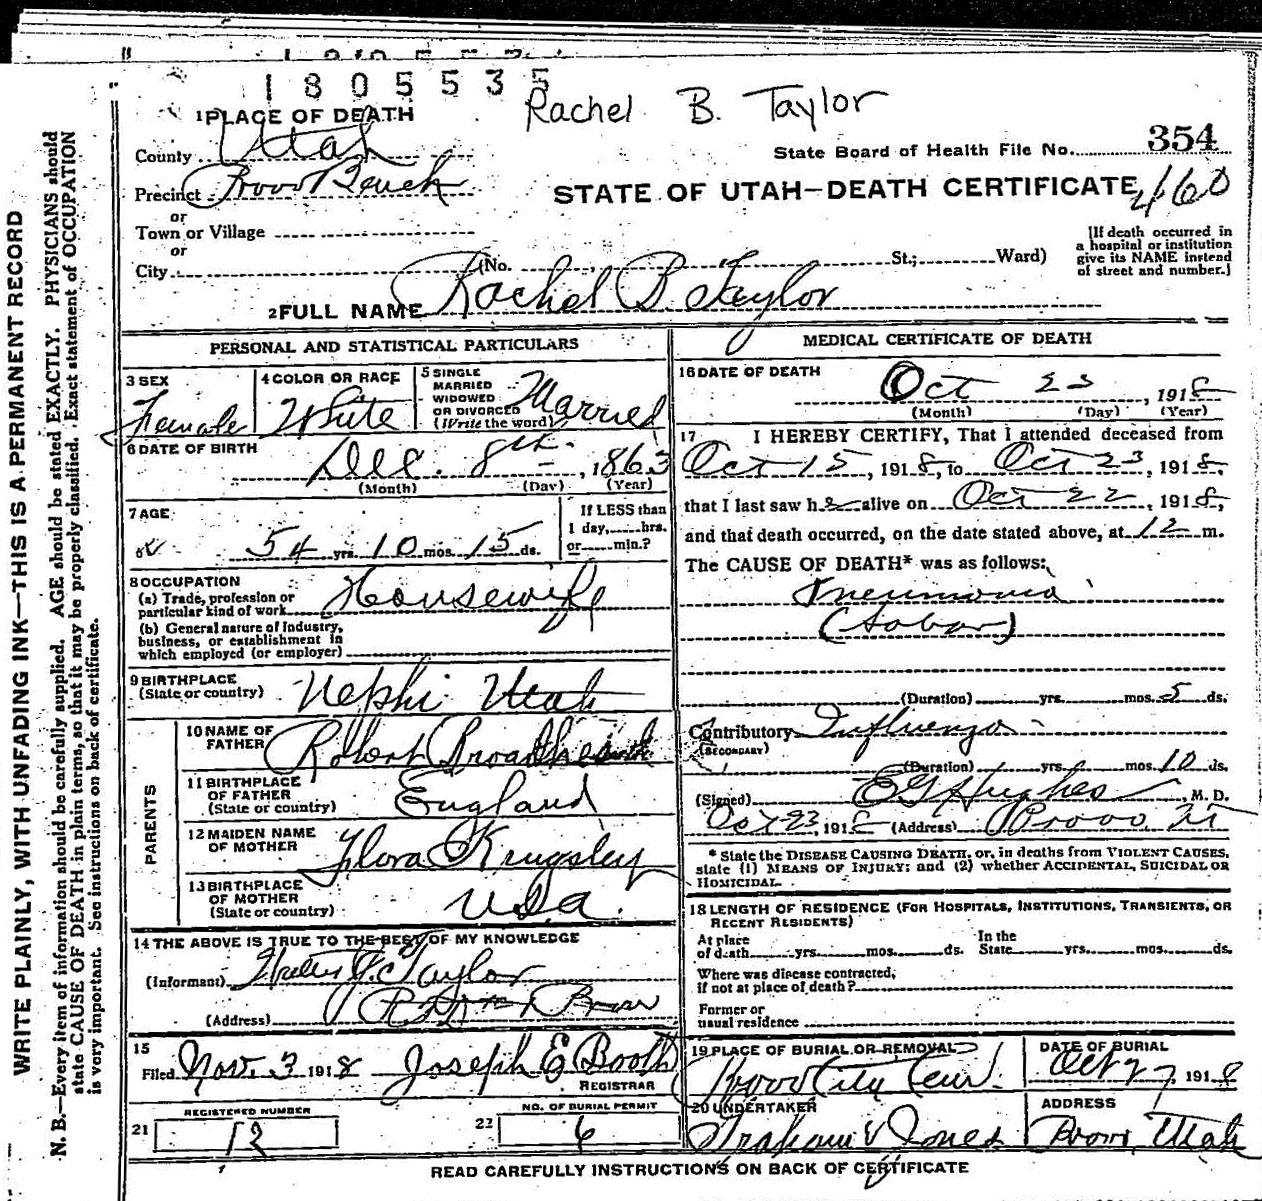 1805535
Rachel B. Taylor
1 PLACE OF DEATH
County Utah
State Board of Health File No. 354
Precinct Provo Bench
STATE OF UTAH—DEATH CERTIFICATE 460
or
Town or Village
or
City (No. St.; Ward)
[If death occurred in a hospital or institution give its NAME instead of street and number.]
2 FULL NAME Rachel B. Taylor
PERSONAL AND STATISTICAL PARTICULARS
3 SEX Female
4 COLOR OR RACE White
5 SINGLE MARRIED WIDOWED OR DIVORCED (Write the word) Married
6 DATE OF BIRTH Dec. 8th, 1863
(Month) (Day) (Year)
7 AGE 54 yrs. 10 mos. 15 ds.
If LESS than 1 day, hrs. or min.?
8 OCCUPATION
(a) Trade, profession or particular kind of work Housewife
(b) General nature of industry, business, or establishment in which employed (or employer)
9 BIRTHPLACE (State or country) Nephi Utah
PARENTS
10 NAME OF FATHER Robert Broadhead
11 BIRTHPLACE OF FATHER (State or country) England
12 MAIDEN NAME OF MOTHER Flora Krugsley
13 BIRTHPLACE OF MOTHER (State or country) USA.
14 THE ABOVE IS TRUE TO THE BEST OF MY KNOWLEDGE
(Informant) J. Taylor
(Address) Provo
15 Filed Nov. 3 1918 Joseph E Booth
REGISTRAR
REGISTERED NUMBER
21 12
NO. OF BURIAL PERMIT
22 6
MEDICAL CERTIFICATE OF DEATH
16 DATE OF DEATH Oct 23, 1918
(Month) (Day) (Year)
17 I HEREBY CERTIFY, That I attended deceased from
Oct 15, 1918, to Oct 23, 1918,
that I last saw her alive on Oct 22, 1918,
and that death occurred, on the date stated above, at 12 m.
The CAUSE OF DEATH* was as follows:
Pneumonia
(Lobar)
(Duration) yrs. mos. 5 ds.
Contributory Influenza
(SECONDARY)
(Duration) yrs. mos. 10 ds.
(Signed) E G Hughes, M. D.
Oct 23, 1918 (Address) Provo, Ut
* State the DISEASE CAUSING DEATH, or, in deaths from VIOLENT CAUSES,
state (1) MEANS OF INJURY; and (2) whether ACCIDENTAL, SUICIDAL OR
HOMICIDAL.
18 LENGTH OF RESIDENCE (FOR HOSPITALS, INSTITUTIONS, TRANSIENTS, OR
RECENT RESIDENTS)
At place of death yrs. mos. ds. In the State yrs. mos. ds.
Where was disease contracted,
if not at place of death?
Former or
usual residence
19 PLACE OF BURIAL OR REMOVAL Provo City Cem.
DATE OF BURIAL Oct 27, 1918
20 UNDERTAKER Graham & Jones
ADDRESS Provo, Utah
READ CAREFULLY INSTRUCTIONS ON BACK OF CERTIFICATE
WRITE PLAINLY, WITH UNFADING INK—THIS IS A PERMANENT RECORD
N. B.—Every item of information should be carefully supplied. AGE should be stated EXACTLY. PHYSICIANS should
state CAUSE OF DEATH in plain terms, so that it may be properly classified. Exact statement of OCCUPATION
is very important. See instructions on back of certificate.